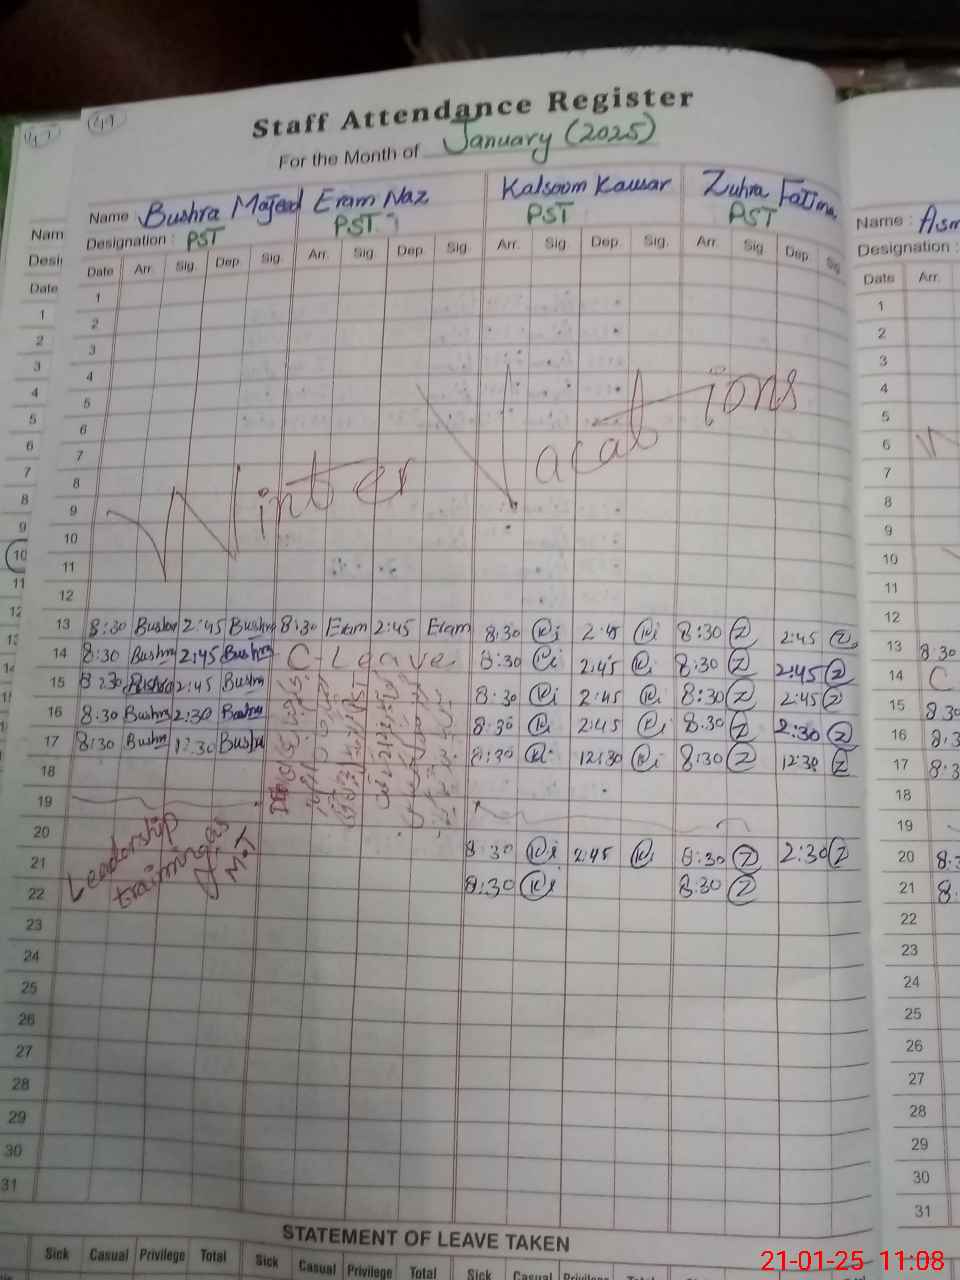 49
Staff Attendance Register
For the Month of January (2025)
Name Bushra Majeed Eram Naz Kalsoom Kausar Zuhra Fatima
Designation : PST PST PST PST
Date Arr. Sig. Dep. Sig. Arr. Sig. Dep. Sig. Arr. Sig. Dep. Sig. Arr. Sig. Dep. Sig.
1
2
3
4
5
6
7
8
9
10
11
12
Winter Vacations
13 8:30 Bushra 2:45 Bushra 8:30 Eram 2:45 Eram 8:30 2:45 8:30 Z 2:45 Z
14 8:30 Bushra 2:45 Bushra C-Leave 8:30 2:45 8:30 Z 2:45 Z
15 8:30 Bushra 2:45 Bushra 8:30 2:45 8:30 Z 2:45 Z
16 8:30 Bushra 2:30 Bushra 8:30 2:45 8:30 Z 2:30 Z
17 8:30 Bushra 12:30 Bushra 8:30 12:30 8:30 Z 12:30 Z
18
19
20
Leadership
training as
MT
21 8:30 2:45 8:30 Z 2:30 Z
22 8:30 8:30 Z
23
24
25
26
27
28
29
30
31
STATEMENT OF LEAVE TAKEN
Sick Casual Privilege Total Sick Casual Privilege Total Sick Casual Privilege
Name : Asm
Designation :
Date Arr.
1
2
3
4
5
6
7
8
9
10
11
12
13 8:30
14 C
15 8:30
16 8:3
17 8:3
18
19
20 8:3
21 8:
22
23
24
25
26
27
28
29
30
31
21-01-25 11:08